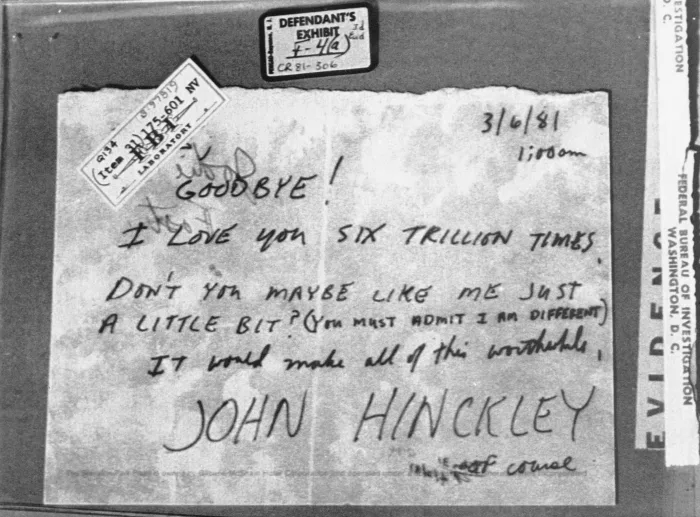 DEFENDANT'S
EXHIBIT
4(a)
CR 81-306
Q134
(Item 31) 175-601 NV
FBI
LABORATORY
3/6/81
1:00am
GOODBYE!
I LOVE you SIX TRILLION TIMES.
DON'T YOU MAYBE LIKE ME JUST
A LITTLE BIT? (YOU MUST ADMIT I AM DIFFERENT)
IT would make all of this worthwhile.
JOHN HINCKLEY
of course
EVIDENCE
FEDERAL BUREAU OF INVESTIGATION
WASHINGTON, D. C.
ESTIGATION
D. C.